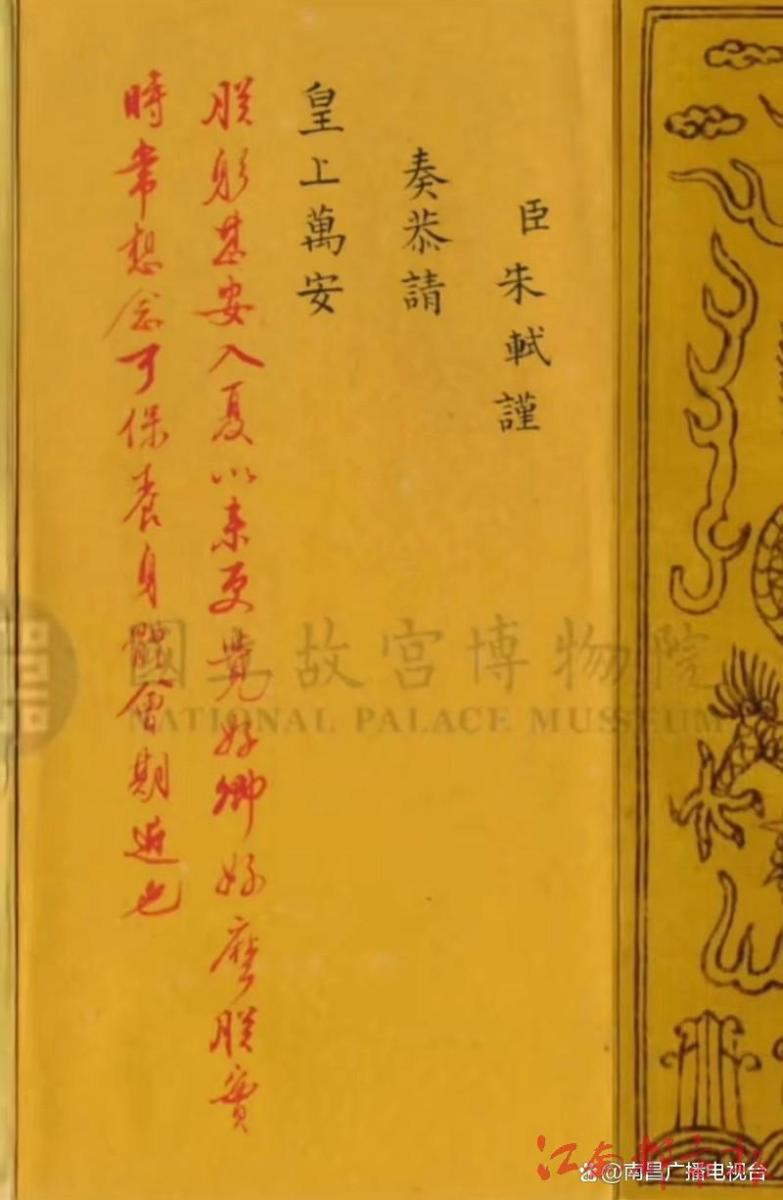 臣朱軾謹
奏恭請
皇上萬安
朕躬甚安入夏以來更覺好卿好麽朕實
時常想念可保養身體會期近也
國立故宮博物院
NATIONAL PALACE MUSEUM
江南都市报
@南昌广播电视台